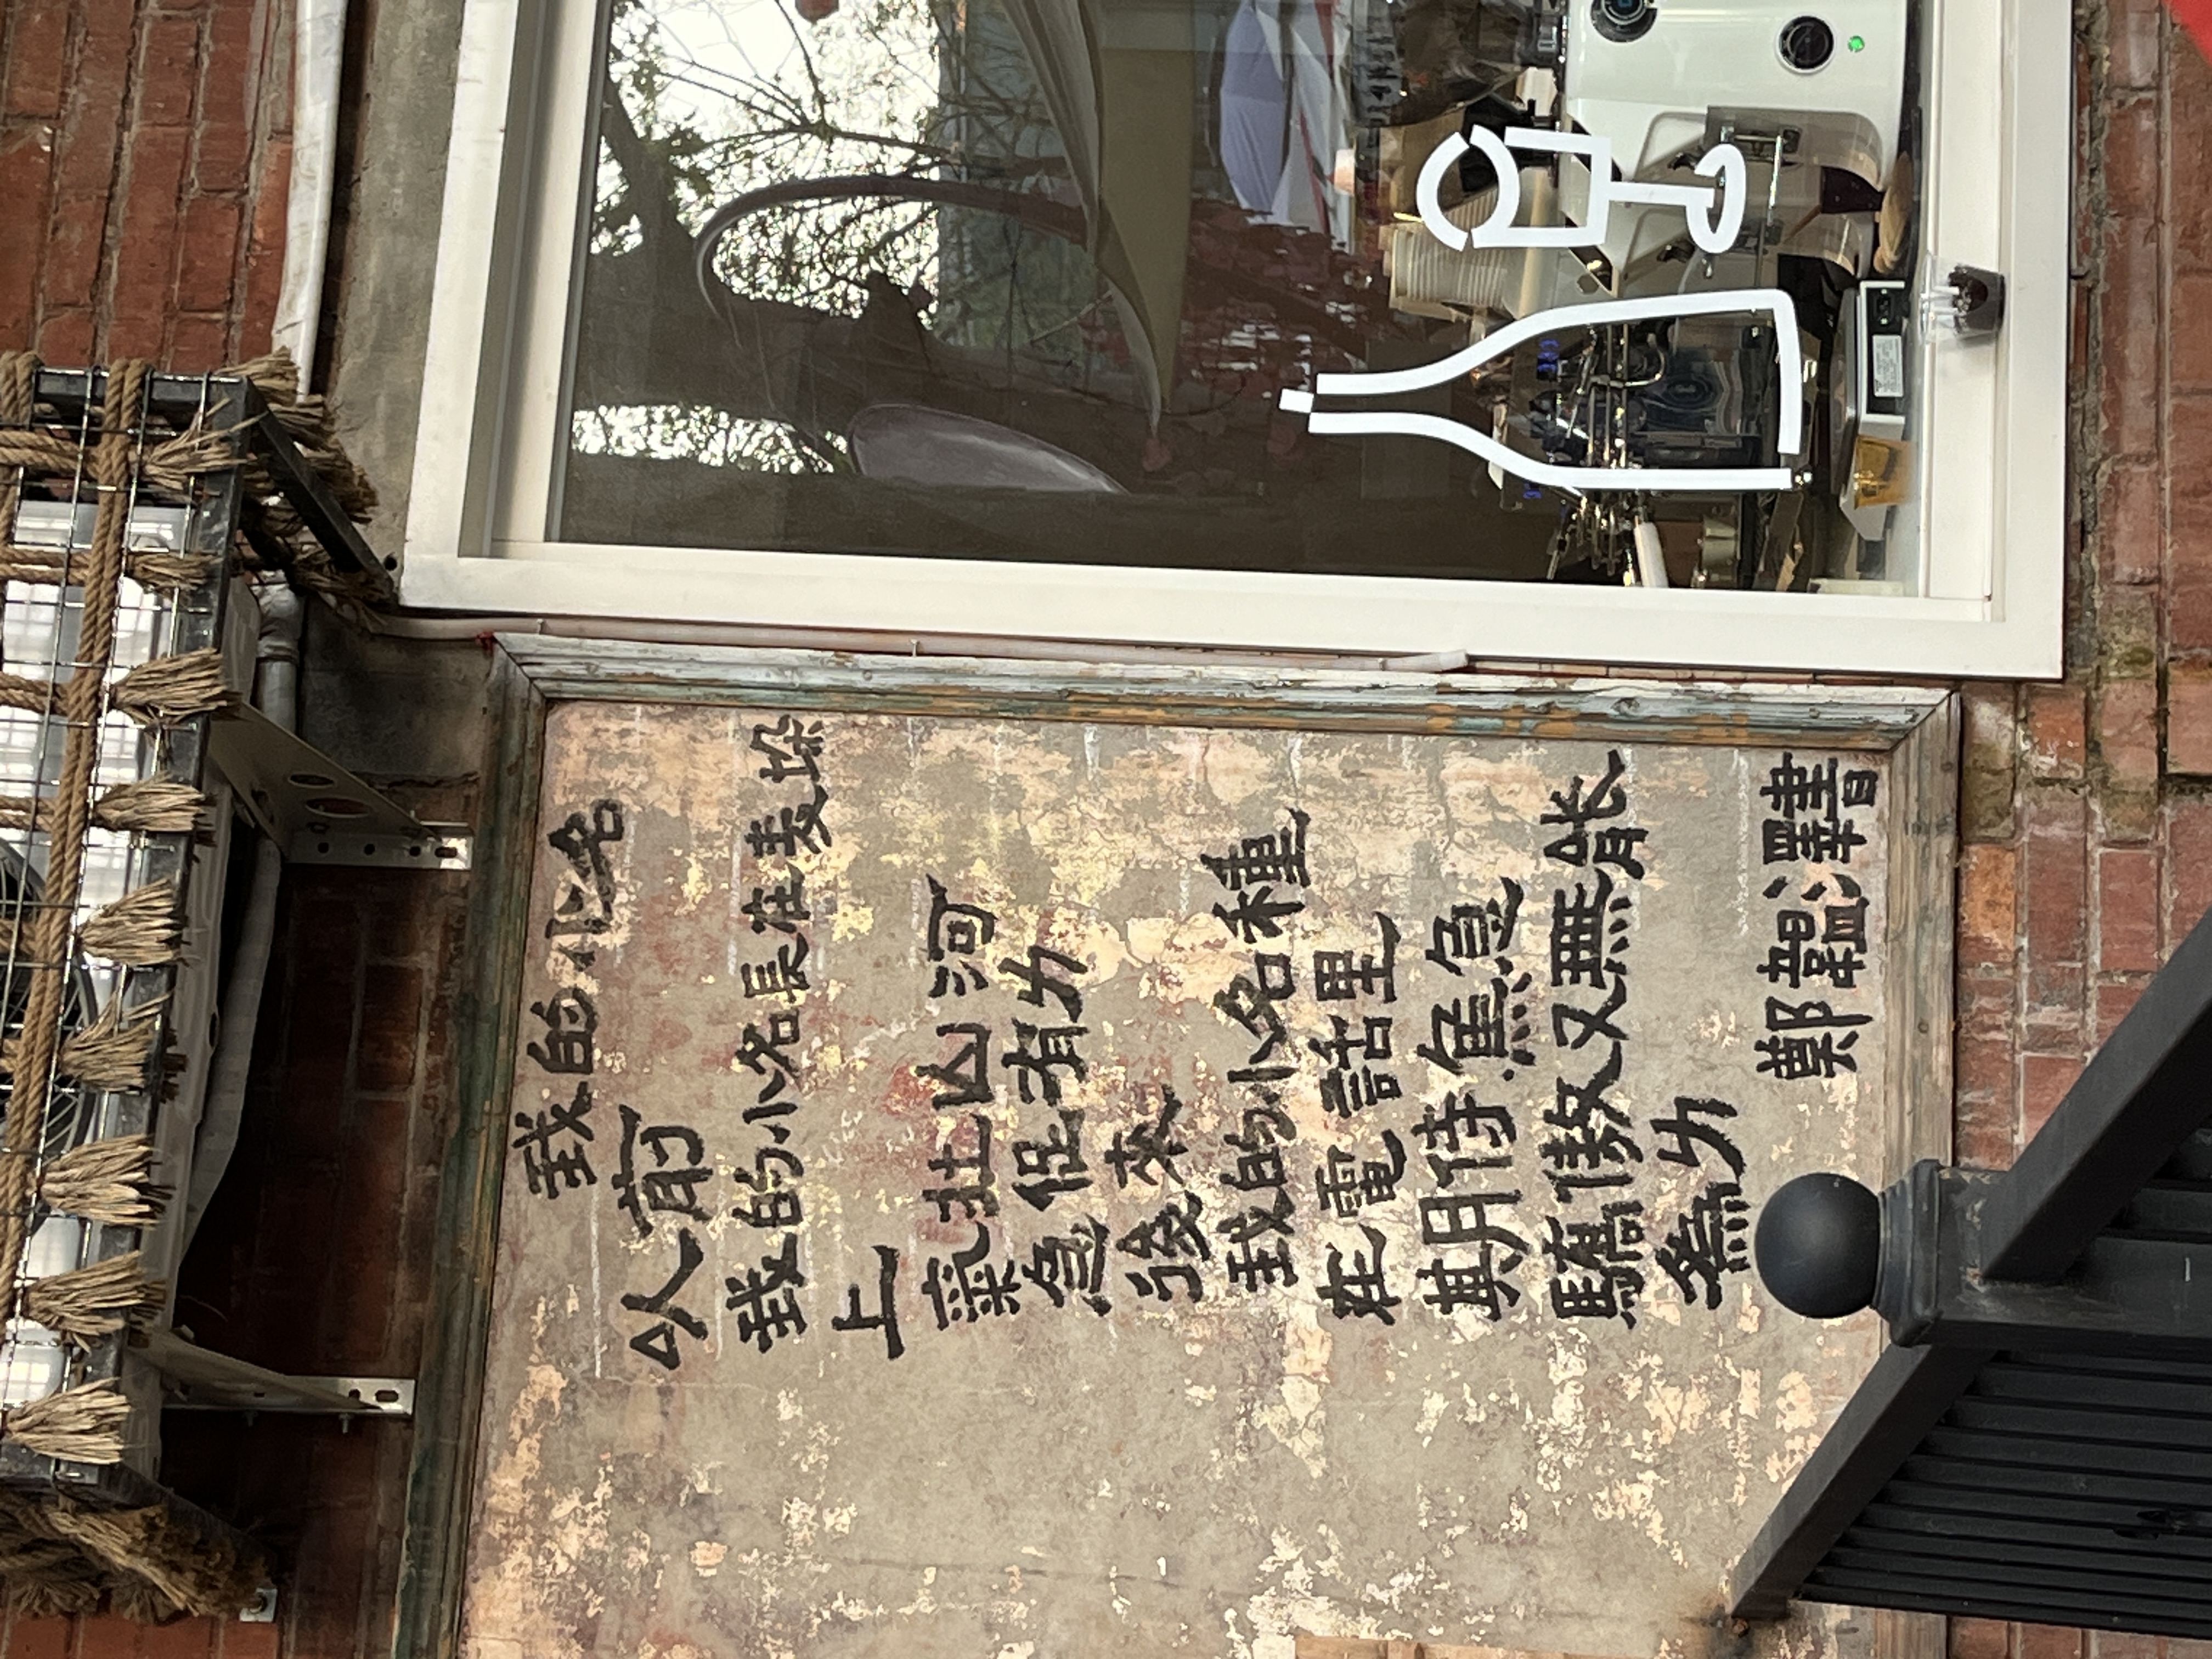 我的小名
从前
我的小名長在麦垛
上
氣壯山河
急促有力
後來
我的小名種
在電話里
期待焦急
驕傲又無能
為力
鄭韞澤書